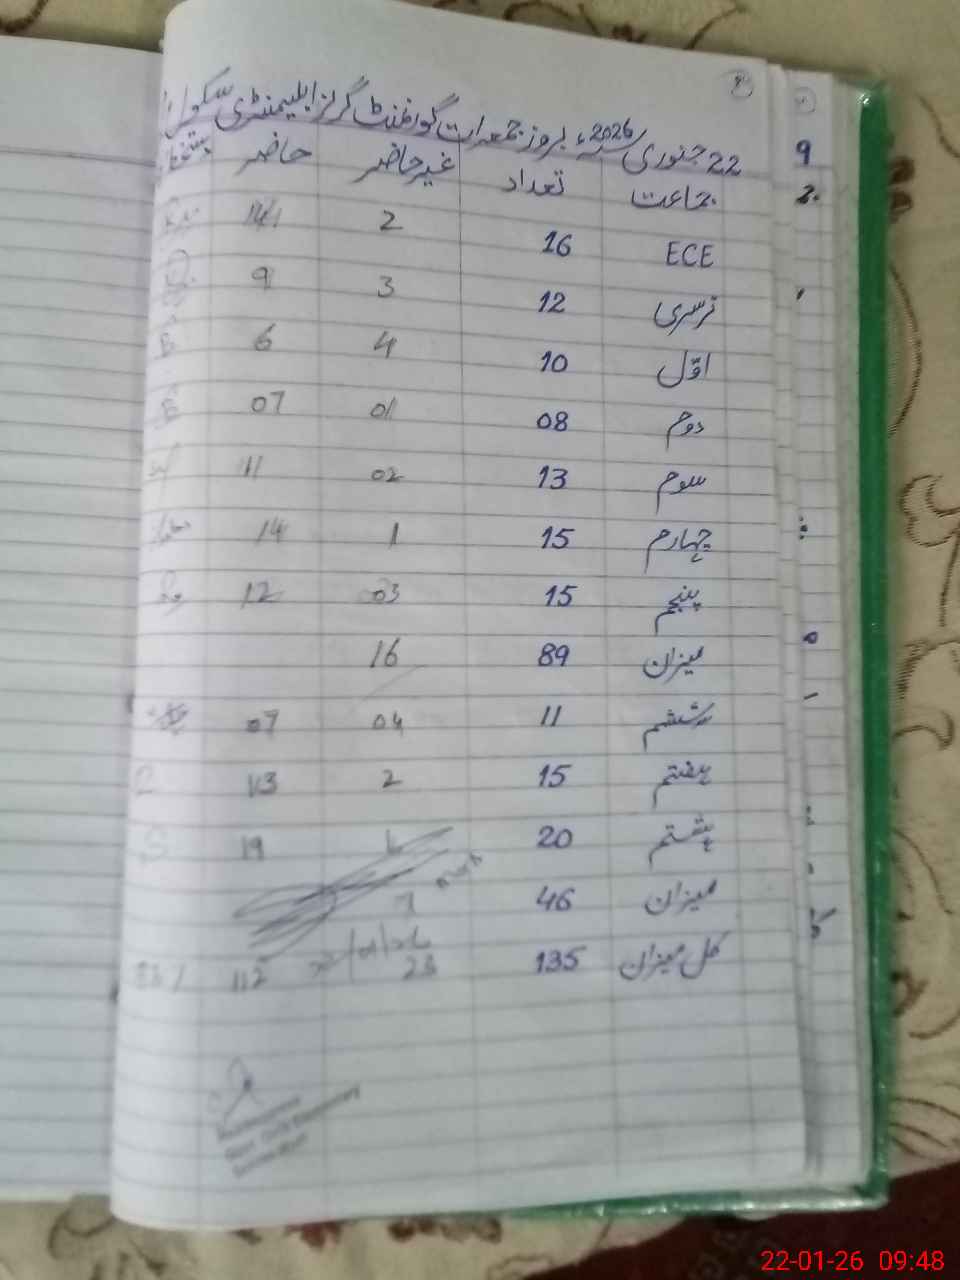 22 جنوری 2026ء بروز جمعرات گورنمنٹ گرلز ایلیمنٹری سکول
جماعت تعداد غیرحاضر حاضر دستخط
ECE 16 2 14
نرسری 12 3 9
اوّل 10 4 6
دوم 08 01 07
سوم 13 02 11
چہارم 15 1 14
پنجم 15 03 12
میزان 89 16
ششم 11 04 07
ہفتم 15 2 13
ہشتم 20 1 19
میزان 46 7
کل میزان 135 23 112
22-01-26 09:48